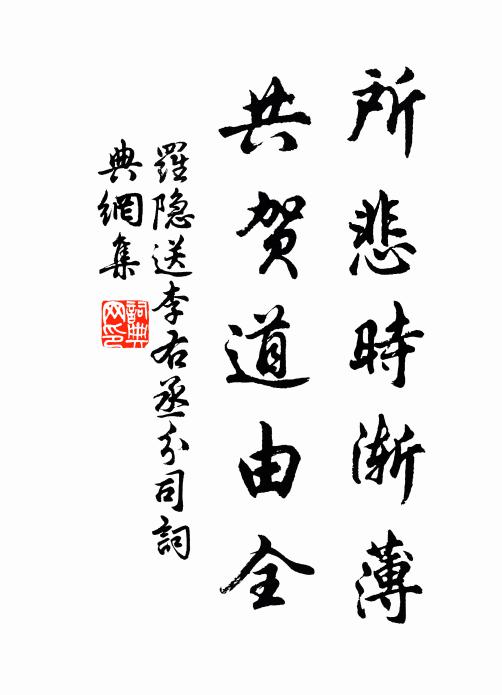 所悲時漸薄
共贺道由全
羅隐送李右丞分司詞
典網集
詞典
网印